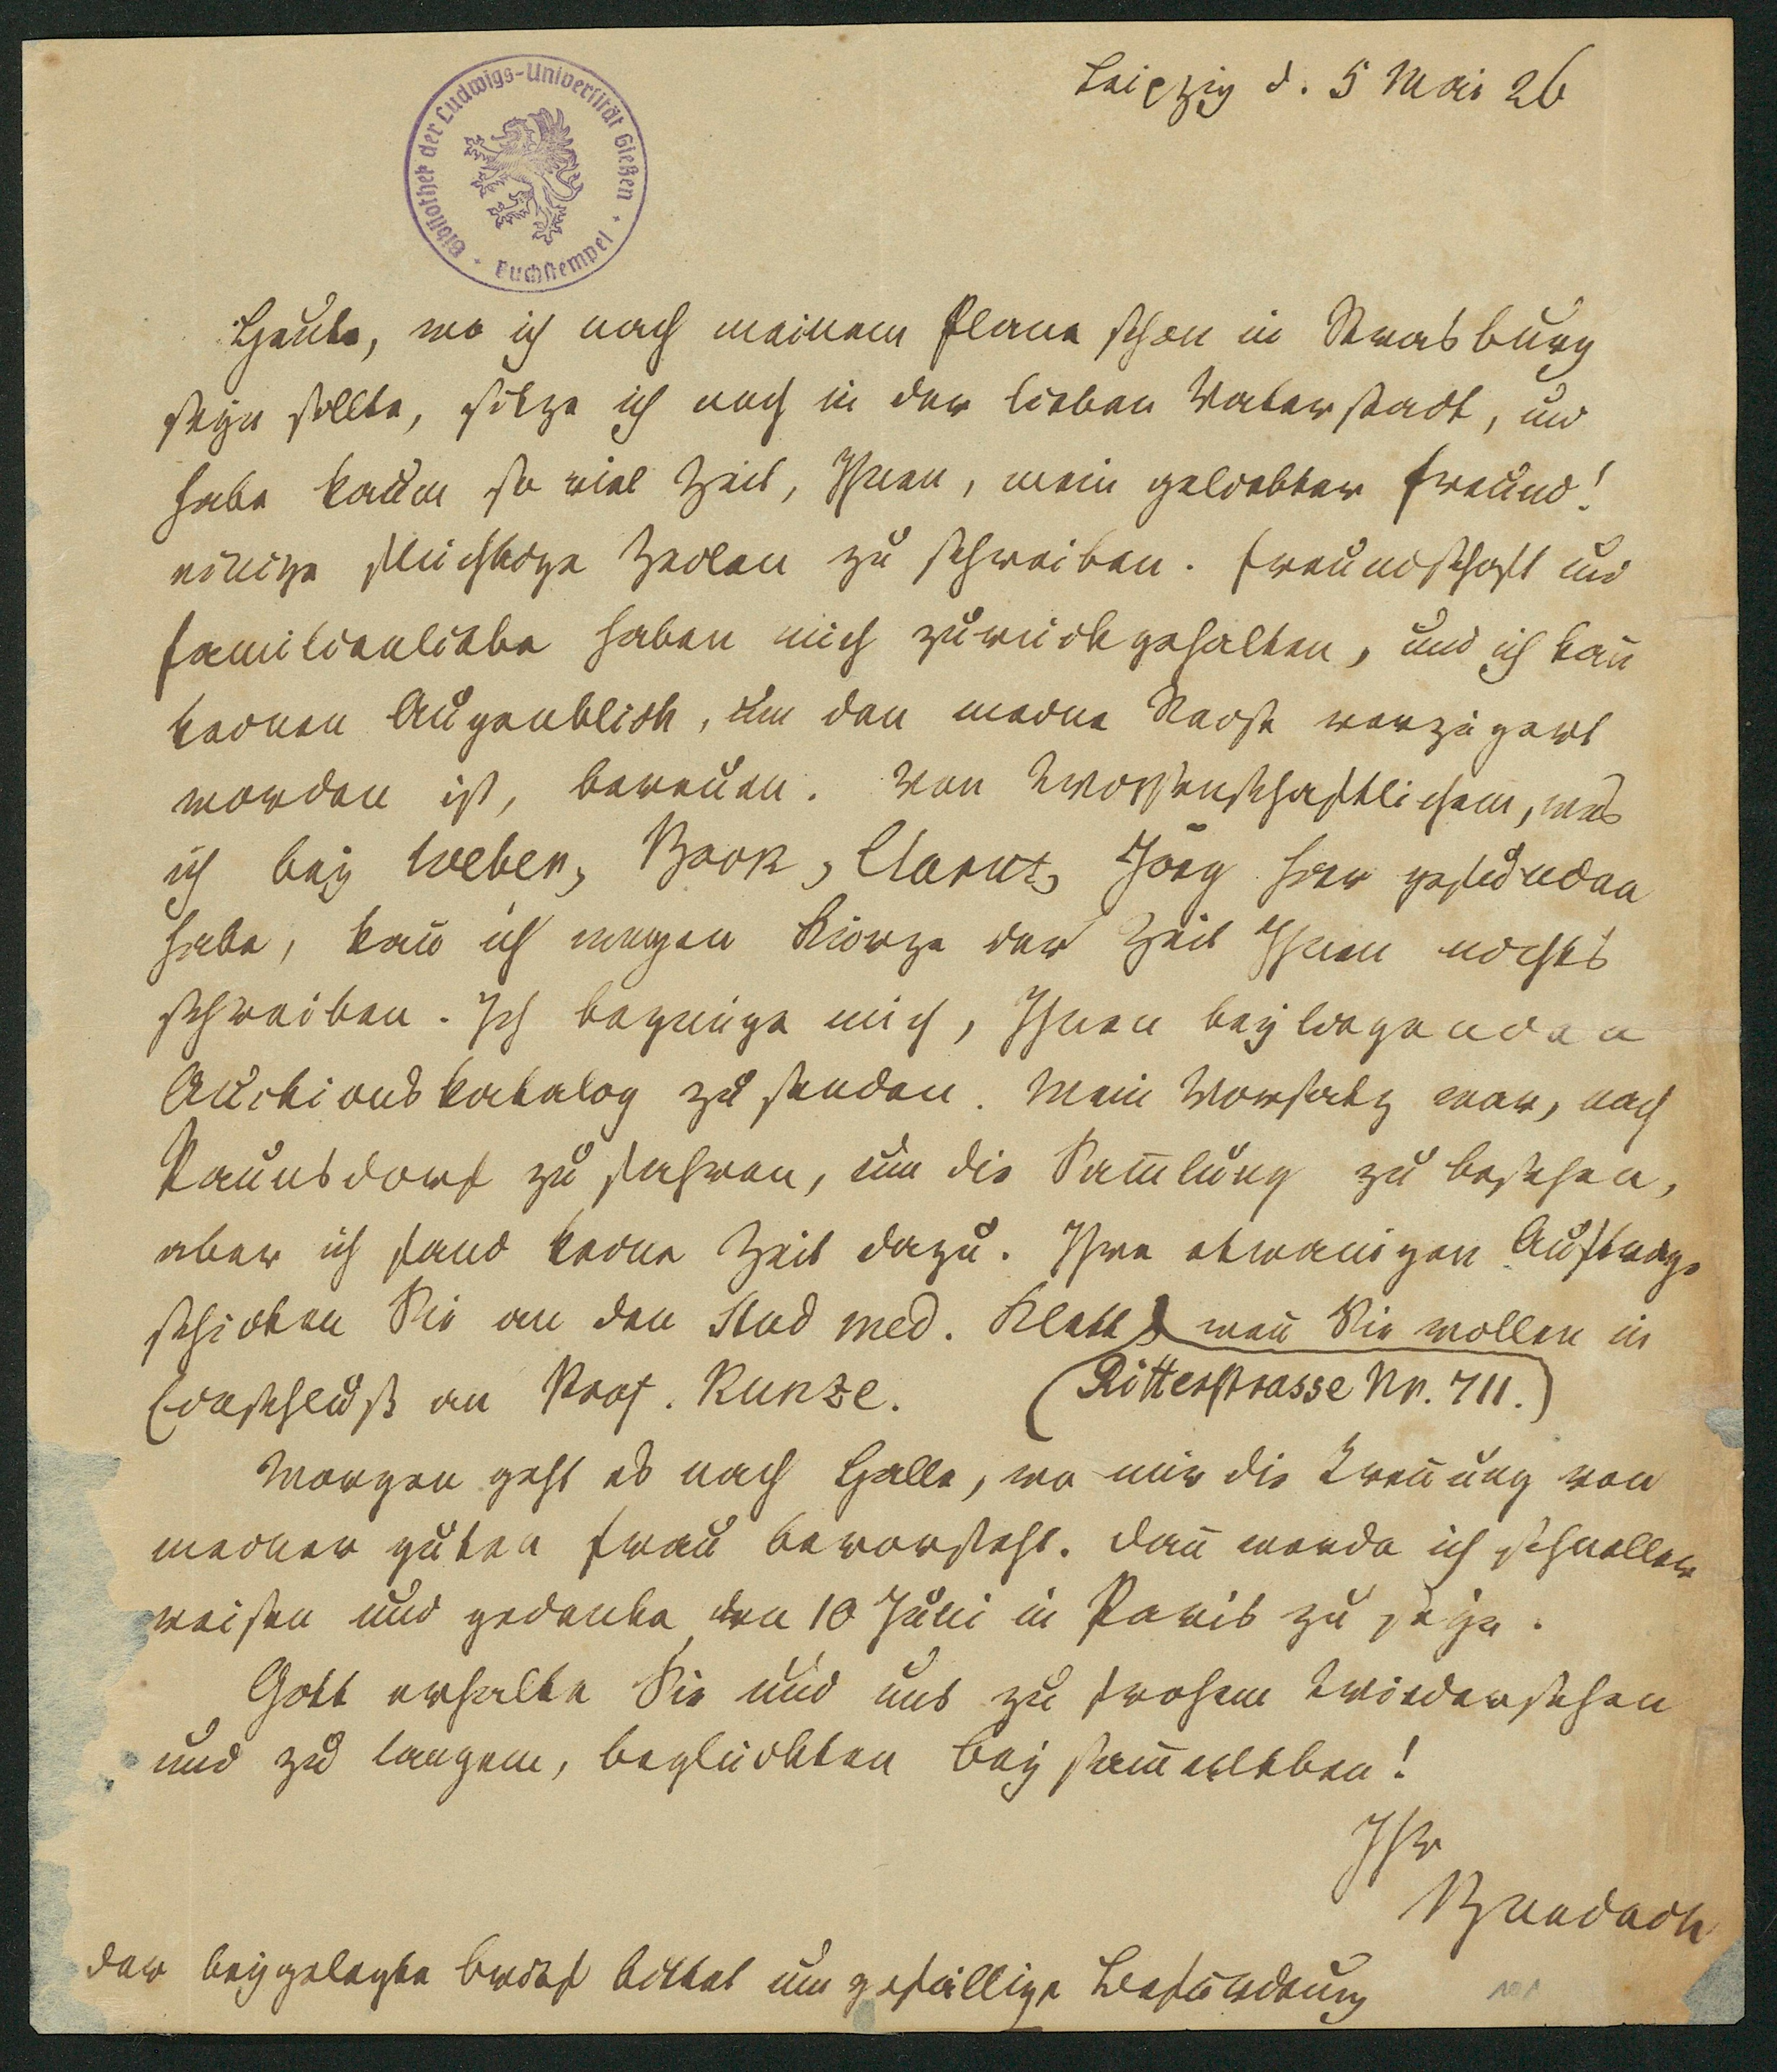 Leipzig d. 5 Mai 26
Bibliothek der Ludwigs-Universität Gießen
Buchstempel
Heute, wo ich nach meinem Plane schon in Strasburg
seyn sollte, sitze ich noch in der lieben Vaterstadt, und
habe kaum so viel Zeit, Ihnen, mein geliebter Freund!
einige flüchtige Zeilen zu schreiben. Freundschaft und
Familienliebe haben mich zurückgehalten, und ich kan̄
keinen Augenblick, um den meine Reise verzögert
worden ist, bereuen. Von Wissenschaftlichem, was
ich bey Weber, Bock, Clarus, Jörg hier gefunden
habe, kan̄ ich wegen Kürze der Zeit Ihnen nichts
schreiben. Ich begnüge mich, Ihnen beyliegenden
Auctionskatalog zu senden. Mein Vorsatz war, nach
Paunsdorf zu fahren, um die Sam̄lung zu besehen,
aber ich fand keine Zeit dazu. Ihre etwanigen Aufträge
schicken Sie an den Stud med. Klett wen̄ Sie wollen in
Einschluß an Prof. Kunze. (Ritterstrasse Nr. 711.)
Morgen geht es nach Halle, wo mir die Tren̄ung von
meiner guten Frau bevorsteht. Dan̄ werde ich schneller
reisen und gedenke den 10 Juni in Paris zu seyn.
Gott erhalte Sie und uns zu frohem Wiedersehen
und zu langem, beglückten Beysam̄enleben!
Ihr
Burdach
Der beygelegte Brief bittet um gefällige Besorderung
101